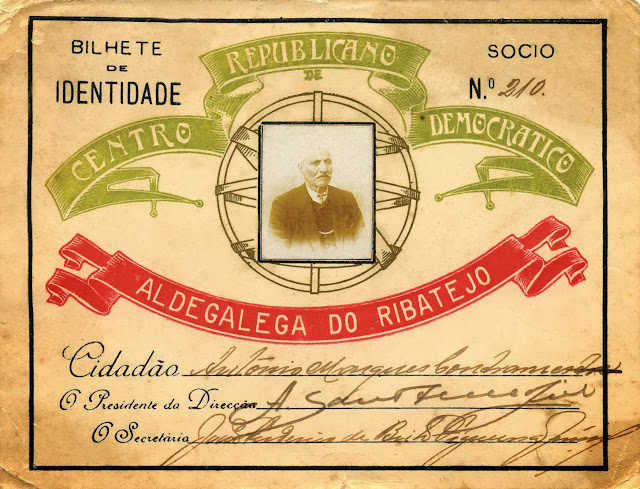 BILHETE
DE
IDENTIDADE
SOCIO
N.º 210.
CENTRO REPUBLICANO DEMOCRATICO
DE
ALDEGALEGA DO RIBATEJO
Cidadão António Marques
O Presidente da Direcção A.
O Secretário de Brito